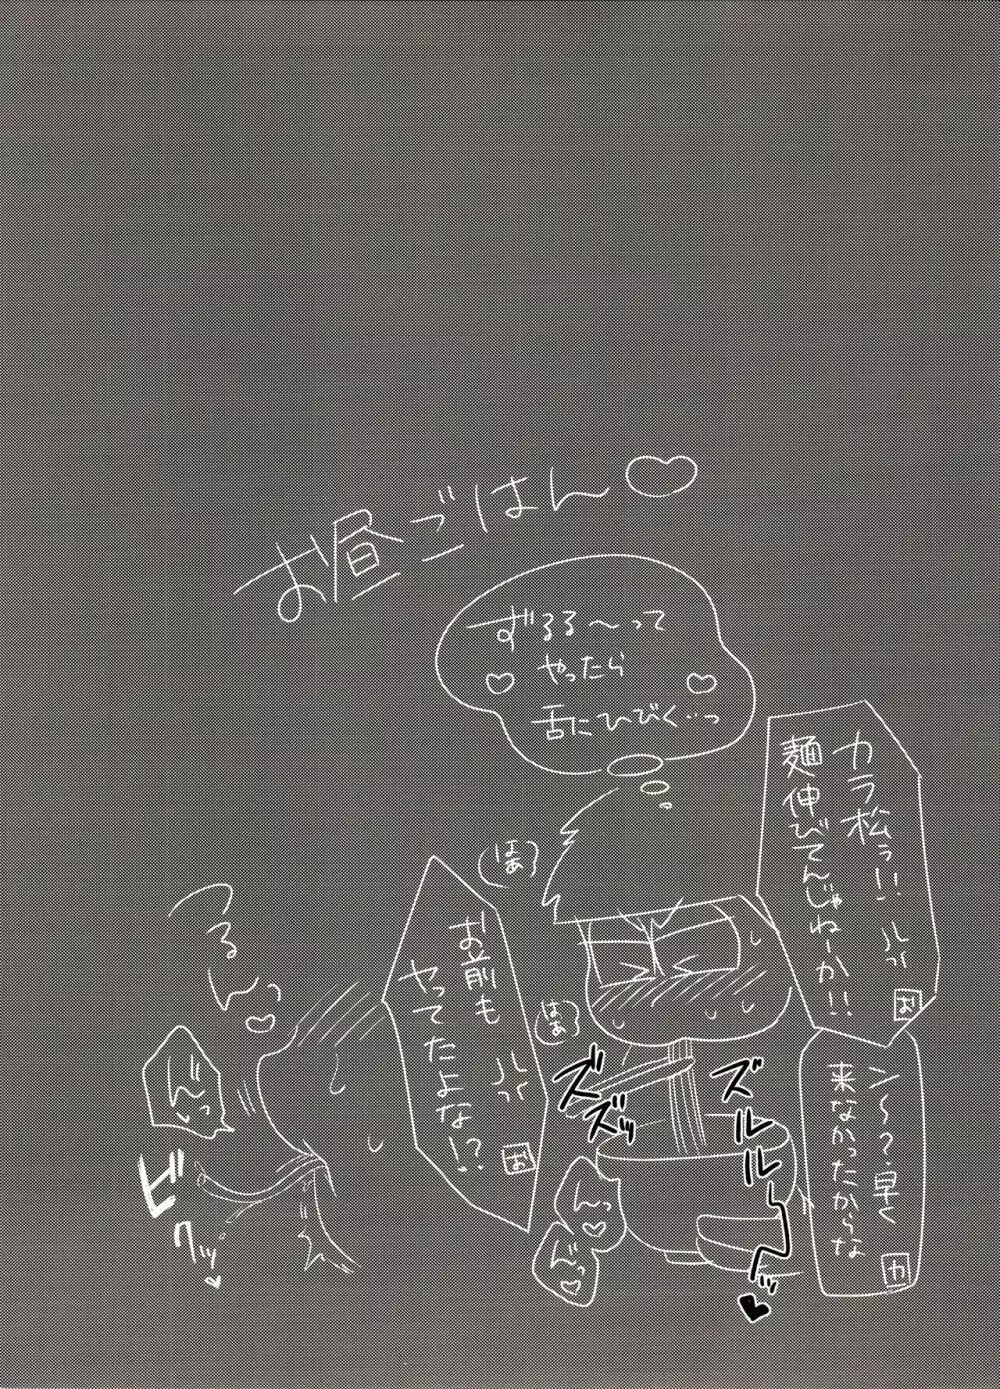 お昼ごはん♡
ずるる〜って
やったら
舌にひびく…っ
カラ松ぅ!!
麺伸びてんじゃねーか!!
お
ン〜?早く
来なかったからな
カ
お前も
やってたよな!?
お
はあっ
はあっ
ズズッ
ズルルーッ
んっ♡
んっ♡
つるんっ♡
んっ
ビクッ♥